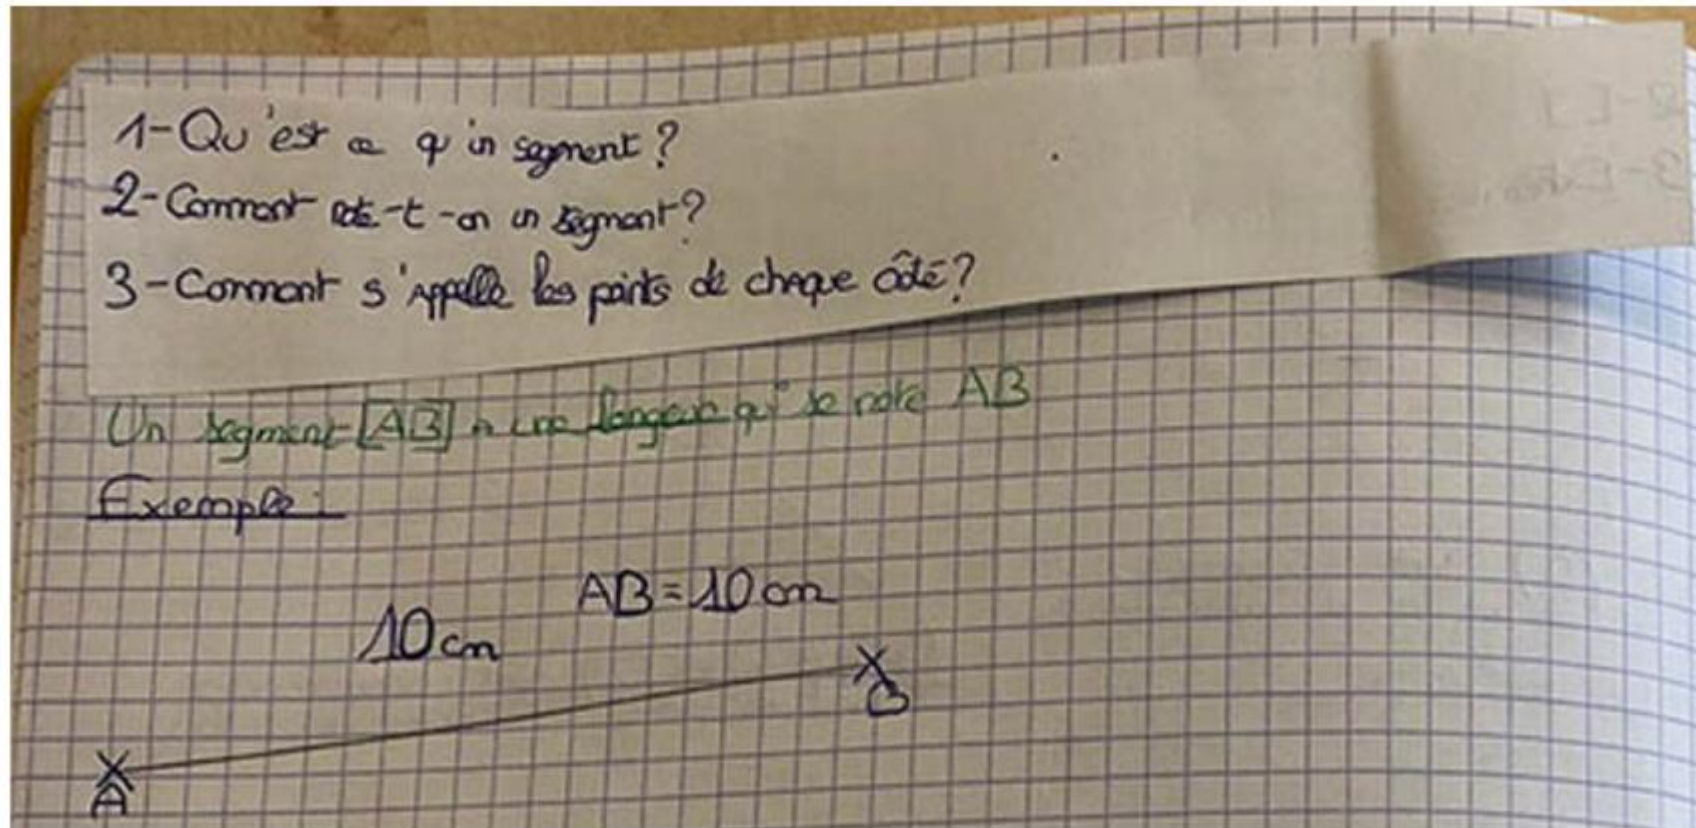 1-Qu'est ce qu'un segment?
2-Comment note-t-on un segment?
3-Comment s'appelle les points de chaque côté?
Un segment [AB] a une longueur qui se note AB
Exemple:
AB=10cm
10cm
B
A